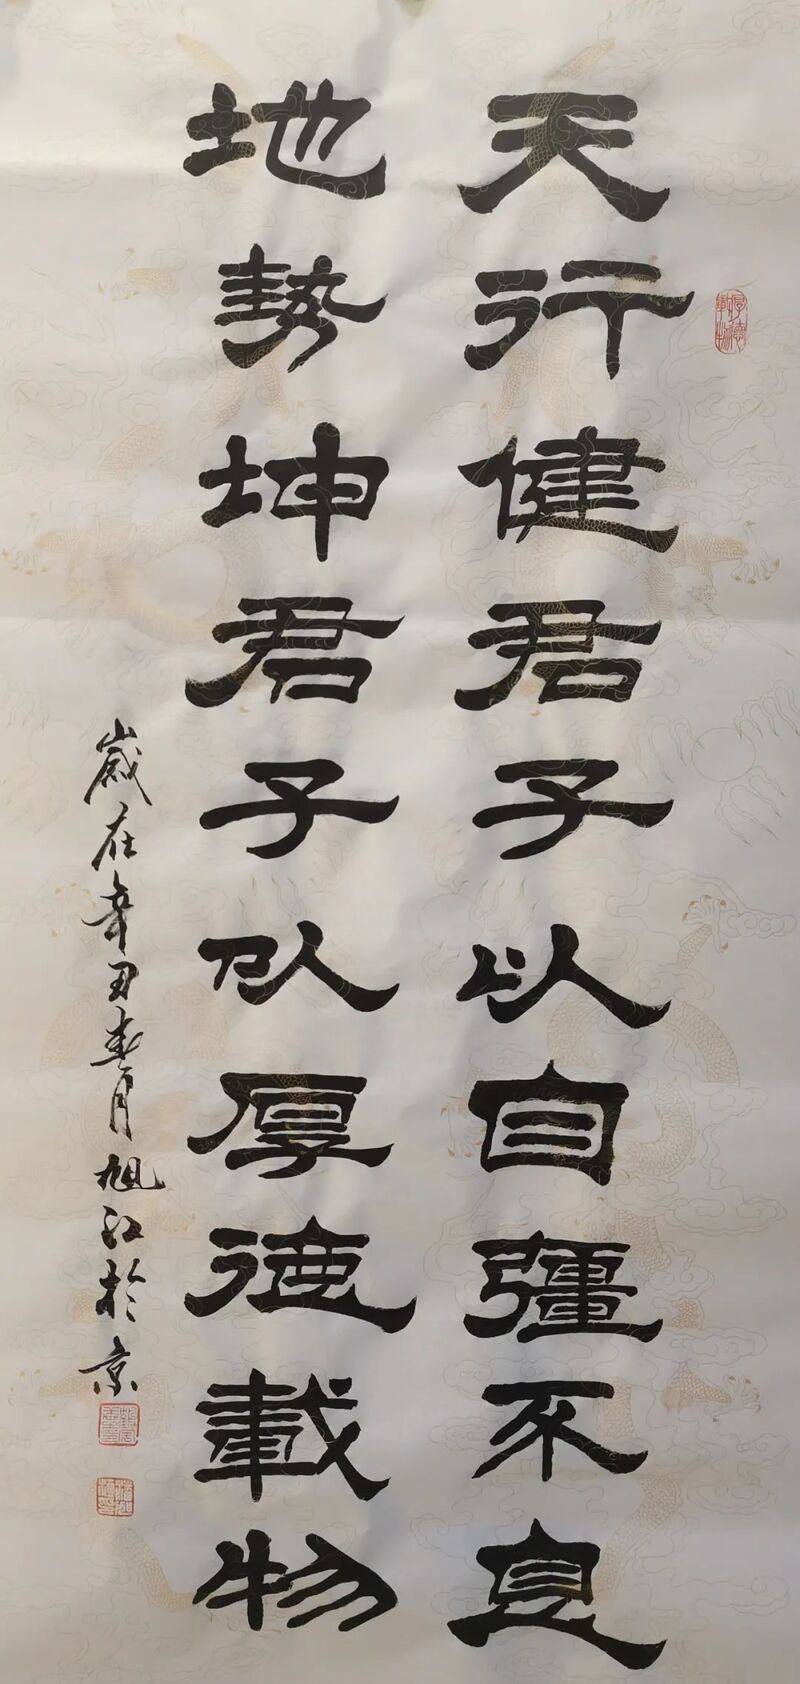 天行健君子以自彊不息
地勢坤君子以厚德載物
歲在辛丑春月旭江於京
厚德載物